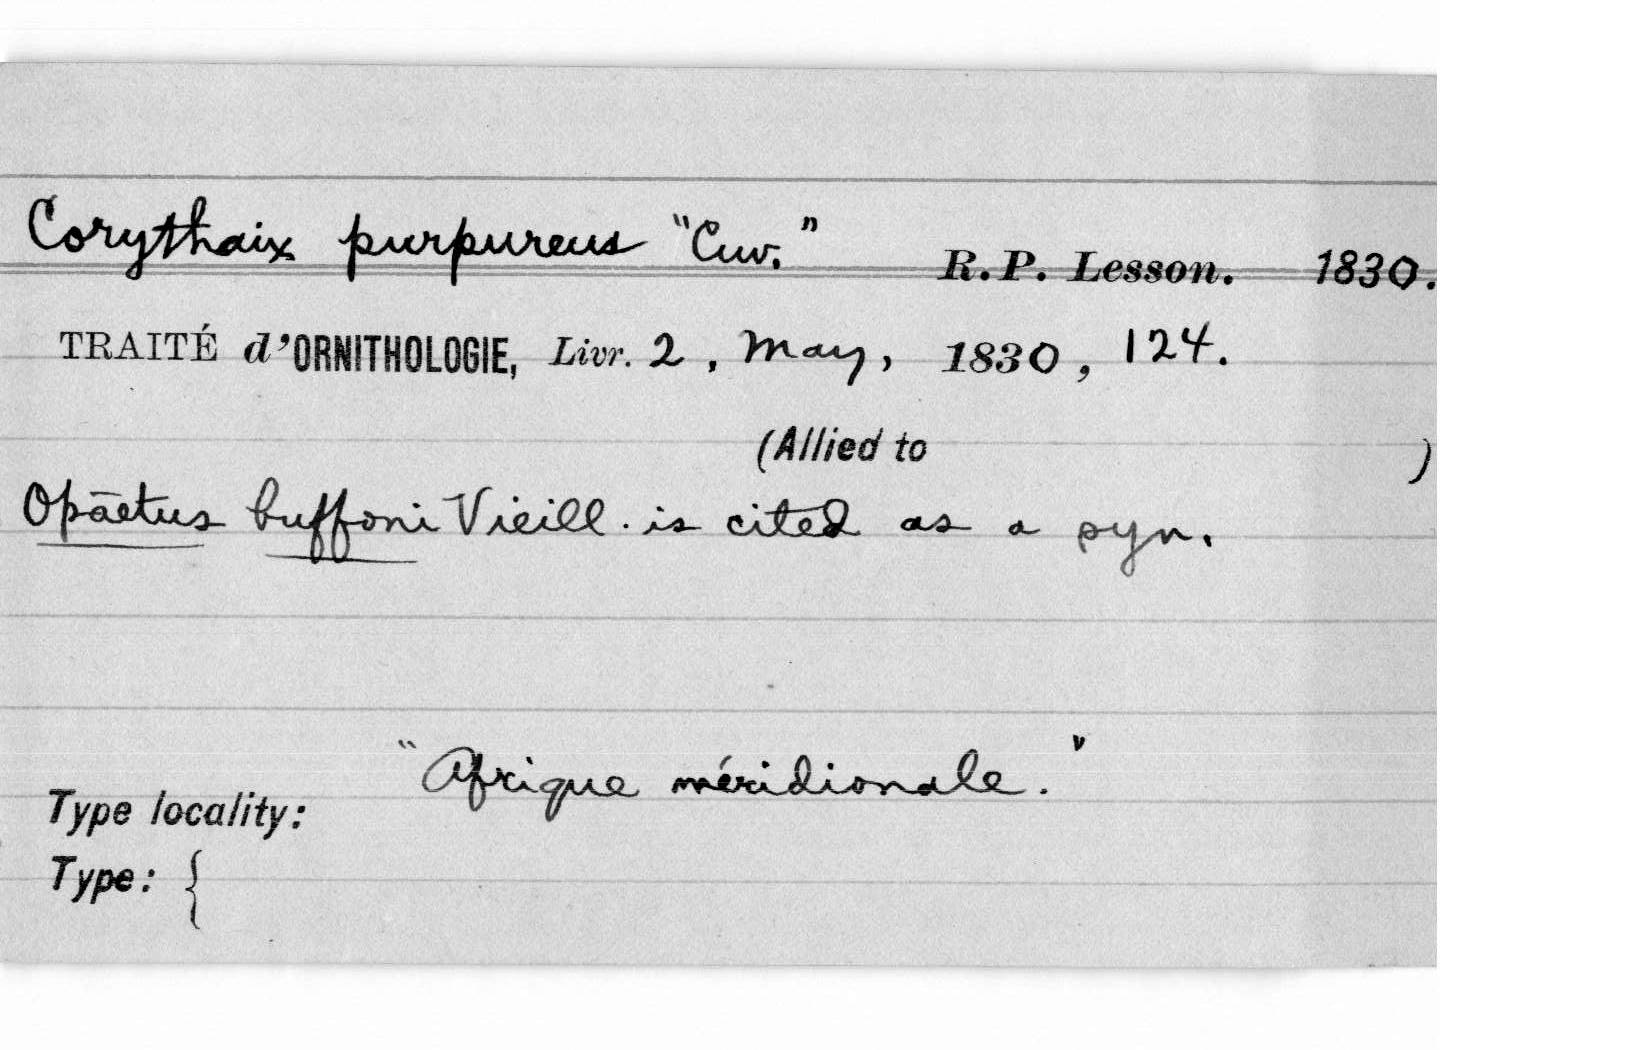 Corythaix purpureus "Cuv." R.P. Lesson. 1830.
TRAITÉ d'ORNITHOLOGIE, Livr. 2, May, 1830, 124.
(Allied to )
Opāetus buffoni Vieill. is cited as a syn.
"Afrique méridionale."
Type locality:
Type: {